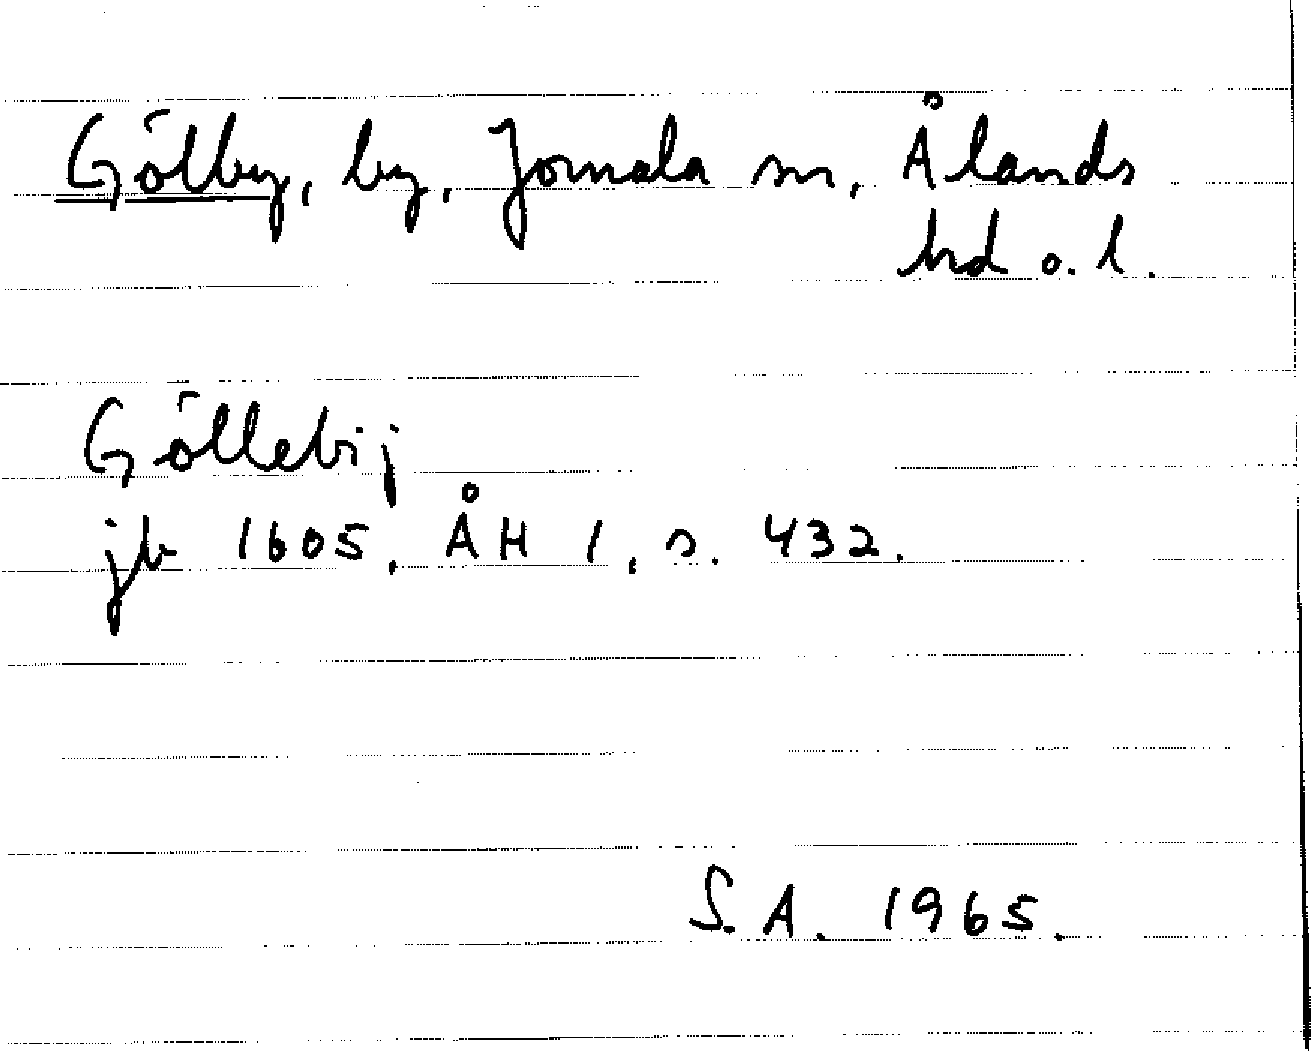 Gölby, by, Jomala sn, Ålands
hd o. l.
Göllebij
jb 1605, ÅH 1, s. 432.
S. A. 1965.